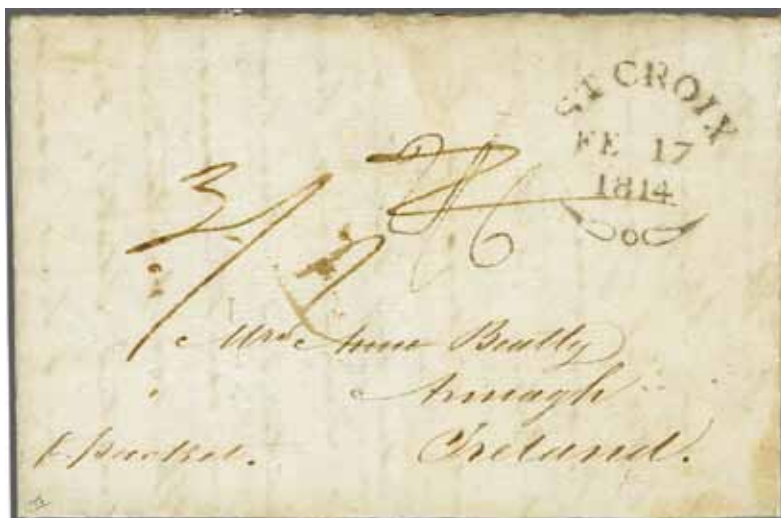 ST CROIX
FE 17
1814
3/
Mrs Anne Beatty
Armagh
Ireland.
p. packet.